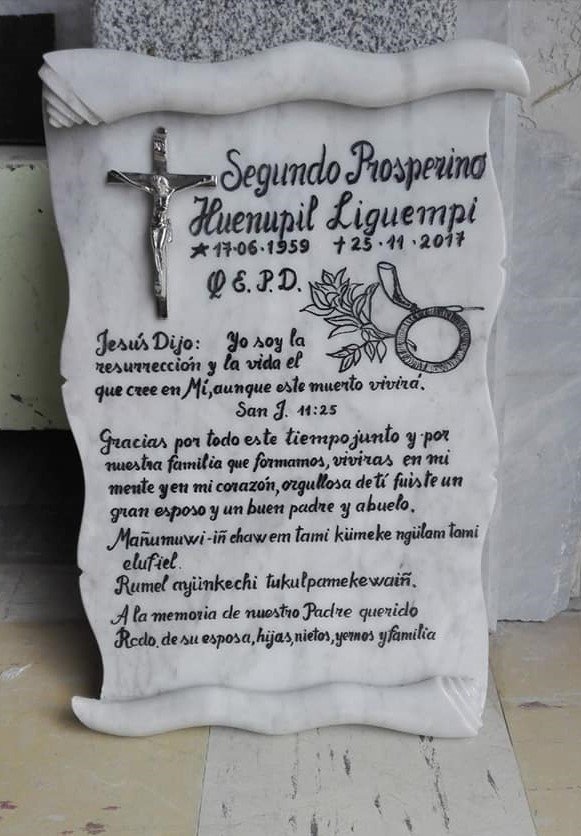 Segundo Prosperino
Huenupil Liguempi
★ 17·06·1959 † 25·11·2017
Q E. P. D.
Jesús Dijo: Yo soy la
resurrección y la vida el
que cree en Mí, aunque este muerto vivirá.
San J. 11:25
Gracias por todo este tiempo junto y por
nuestra familia que formamos, viviras en mi
mente y en mi corazón, orgullosa de tí fuiste un
gran esposo y un buen padre y abuelo.
Mañumuwi-iñ chaw em tami kümeke ngülam tami
elufiel.
Rumel ayünkechi tukulpamekewaiñ.
A la memoria de nuestro Padre querido
Rcdo. de su esposa, hijas, nietos, yernos y familia